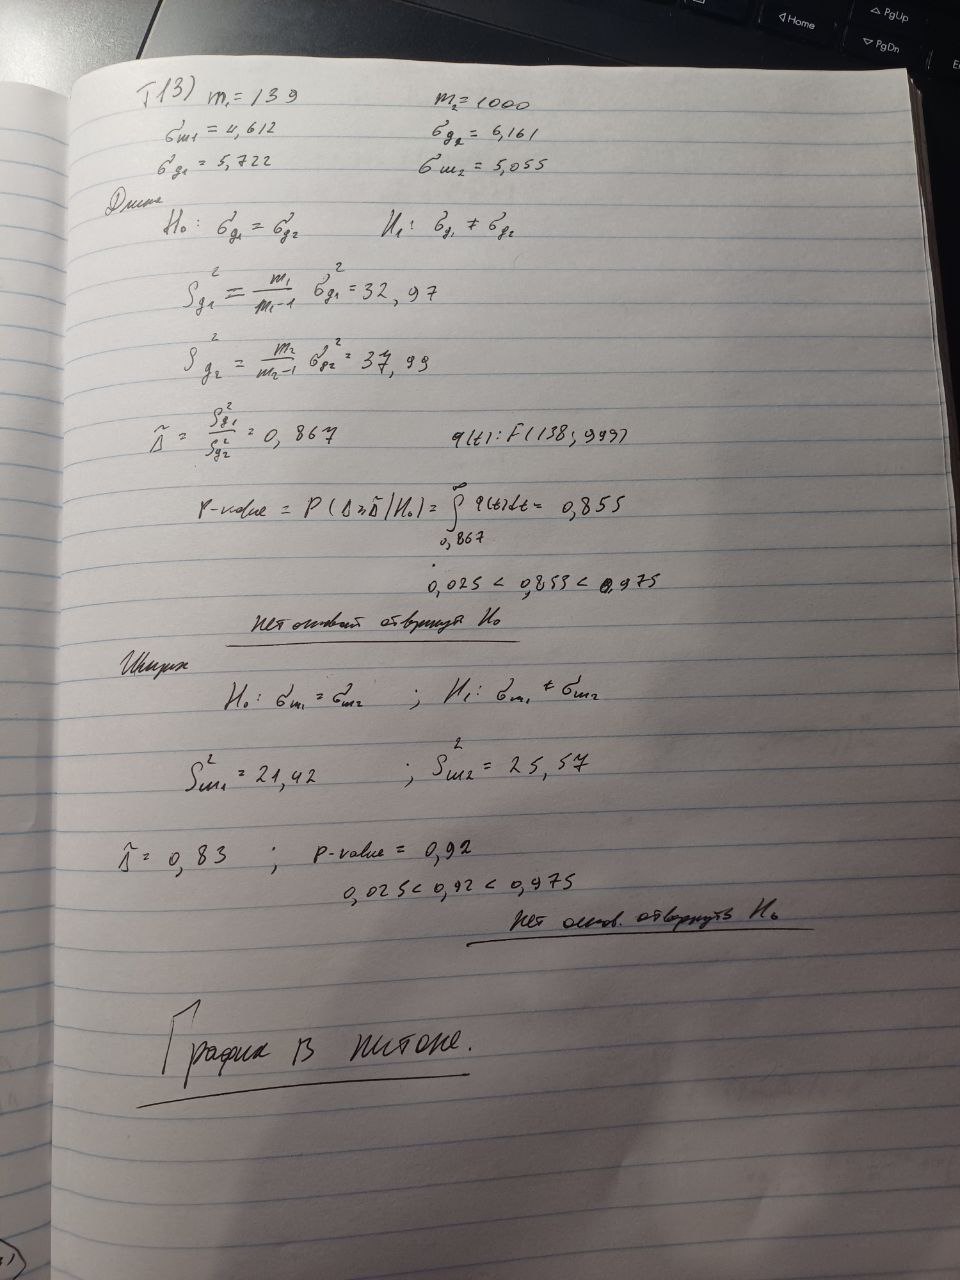 Home
PgUp
PgDn
T13) m₁ = 139 m₂ = 1000
σ_ш1 = 4,612 σ_д2 = 6,161
σ_д1 = 5,722 σ_ш2 = 5,055
Длина
H₀: σ_д1 = σ_д2 H₁: σ_д1 ≠ σ_д2
S²_д1 = m₁/(m₁-1) σ²_д1 = 32,97
S²_д2 = m₂/(m₂-1) σ²_д2 = 37,99
Δ̃ = S²_д1/S²_д2 = 0,867 q(t): F(138; 999)
P-value = P(Δ ≥ Δ̃ | H₀) = ∫_{0,867}^{∞} q(t)dt = 0,855
0,025 < 0,853 < 0,975
нет основан отвергнуть H₀
Ширина
H₀: σ_ш1 = σ_ш2 ; H₁: σ_ш1 ≠ σ_ш2
S²_ш1 = 21,42 ; S²_ш2 = 25,57
Δ̃ = 0,83 ; P-value = 0,92
0,025 < 0,92 < 0,975
нет основ. отвергнуть H₀
График в питоне.